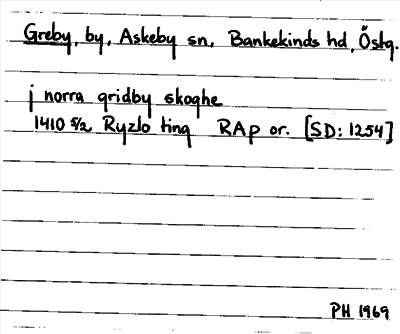 Greby, by, Askeby sn, Bankekinds hd, Östg.
j norra gridby skoghe
1410 5/2 Ryzlo ting RAp or. [SD: 1254]
PH 1969